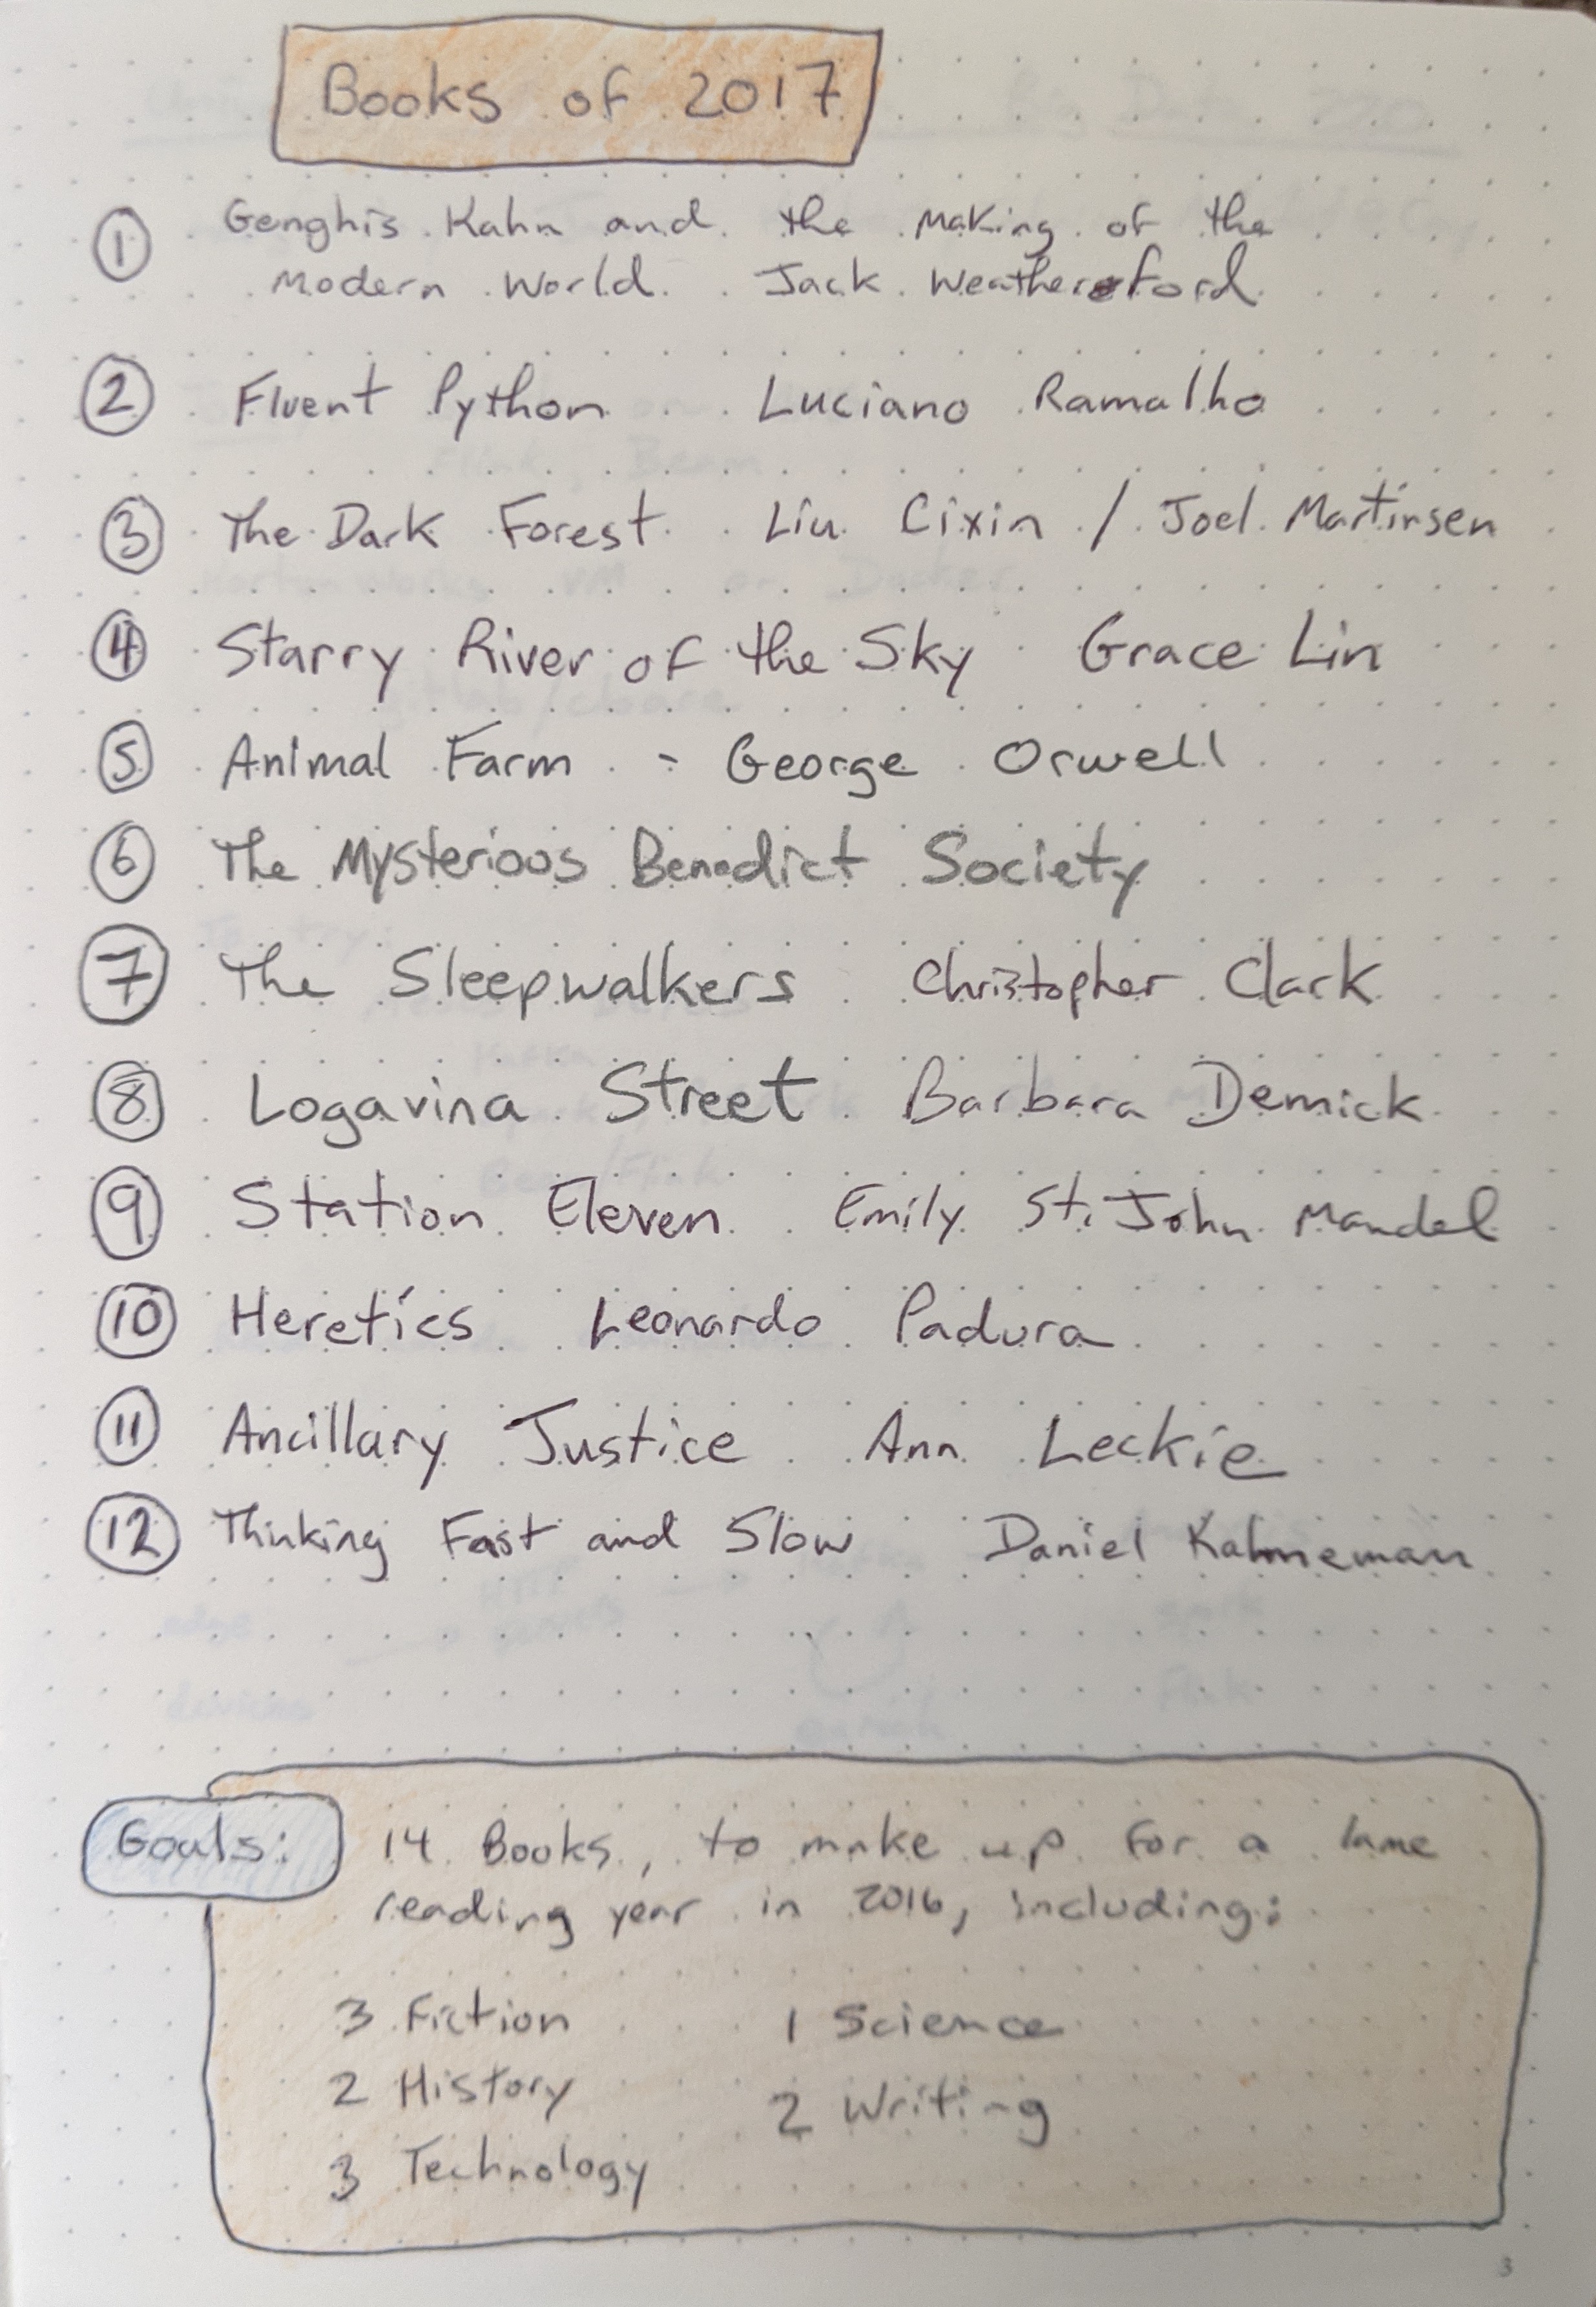 Books of 2017
① Genghis Kahn and the Making of the
Modern World Jack Weatherford
② Fluent Python Luciano Ramalho
③ The Dark Forest Liu Cixin / Joel Martinsen
④ Starry River of the Sky Grace Lin
⑤ Animal Farm - George Orwell
⑥ The Mysterious Benedict Society
⑦ The Sleepwalkers Christopher Clark
⑧ Logavina Street Barbara Demick
⑨ Station Eleven Emily St. John Mandel
⑩ Heretics Leonardo Padura
⑪ Ancillary Justice Ann Leckie
⑫ Thinking Fast and Slow Daniel Kahneman
Goals: 14 Books, to make up for a lame
reading year in 2016, including:
3 Fiction 1 Science
2 History 2 Writing
3 Technology
3